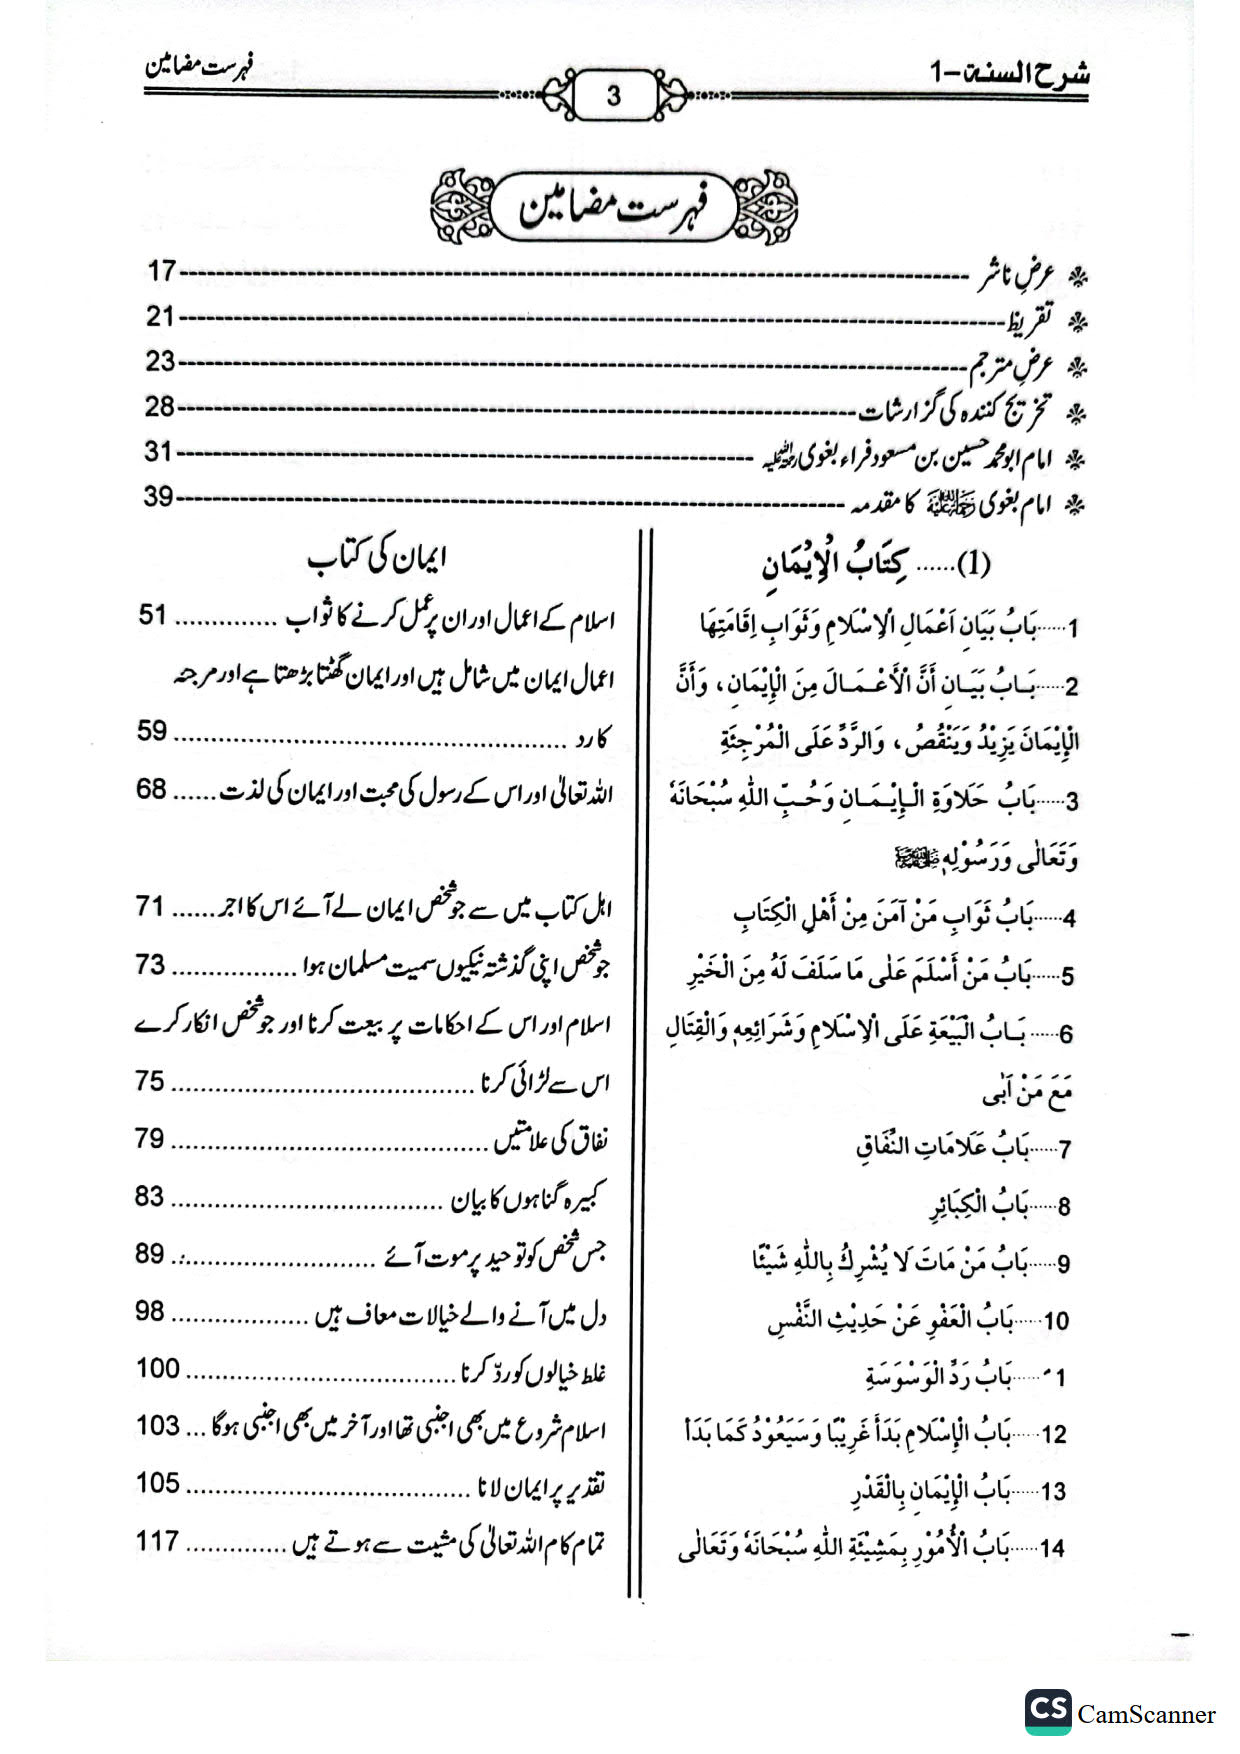 شرح السنة-1
3
فہرست مضامین
فہرست مضامین
عرضِ ناشر 17
تقریظ 21
عرضِ مترجم 23
تخریج کنندہ کی گزارشات 28
امام ابو محمد حسین بن مسعود فراء بغوی رحمہ اللہ علیہ 31
امام بغوی رحمہ اللہ علیہ کا مقدمہ 39
(1)...... كِتَابُ الْإِيْمَانِ
ایمان کی کتاب
1......بَابُ بَيَانِ اَعْمَالِ الْاِسْلَامِ وَثَوَابِ اِقَامَتِهَا
اسلام کے اعمال اور ان پر عمل کرنے کا ثواب .............. 51
2......بَابُ بَيَانِ أَنَّ الْأَعْمَالَ مِنَ الْإِيْمَانِ، وَأَنَّ
اعمال ایمان میں شامل ہیں اور ایمان گھٹتا بڑھتا ہے اور مرجئہ
الْإِيْمَانَ يَزِيْدُ وَيَنْقُصُ، وَالرَّدِّ عَلَى الْمُرْجِئَةِ
کا رد .............. 59
3......بَابُ حَلَاوَةِ الْإِيْمَانِ وَحُبِّ اللّٰهِ سُبْحَانَهٗ
اللہ تعالیٰ اور اس کے رسول کی محبت اور ایمان کی لذت ...... 68
وَتَعَالٰى وَرَسُوْلِهٖ ﷺ
4......بَابُ ثَوَابِ مَنْ آمَنَ مِنْ أَهْلِ الْكِتَابِ
اہل کتاب میں سے جو شخص ایمان لے آئے اس کا اجر ...... 71
5......بَابُ مَنْ أَسْلَمَ عَلٰى مَا سَلَفَ لَهٗ مِنَ الْخَيْرِ
جو شخص اپنی گذشتہ نیکیوں سمیت مسلمان ہوا .............. 73
6......بَابُ الْبَيْعَةِ عَلَى الْاِسْلَامِ وَشَرَائِعِهٖ وَالْقِتَالِ
اسلام اور اس کے احکامات پر بیعت کرنا اور جو شخص انکار کرے
مَعَ مَنْ اَبٰى
اس سے لڑائی کرنا .............. 75
7......بَابُ عَلَامَاتِ النِّفَاقِ
نفاق کی علامتیں .............. 79
8......بَابُ الْكِبَائِرِ
کبیرہ گناہوں کا بیان .............. 83
9......بَابُ مَنْ مَاتَ لَا يُشْرِكُ بِاللّٰهِ شَيْئًا
جس شخص کو توحید پر موت آئے .............. 89
10......بَابُ الْعَفْوِ عَنْ حَدِيْثِ النَّفْسِ
دل میں آنے والے خیالات معاف ہیں .............. 98
1......بَابُ رَدِّ الْوَسْوَسَةِ
غلط خیالوں کو ردّ کرنا .............. 100
12......بَابُ الْإِسْلَامِ بَدَأَ غَرِيْبًا وَسَيَعُوْدُ كَمَا بَدَأَ
اسلام شروع میں بھی اجنبی تھا اور آخر میں بھی اجنبی ہوگا ... 103
13......بَابُ الْإِيْمَانِ بِالْقَدْرِ
تقدیر پر ایمان لانا .............. 105
14......بَابُ الْأُمُوْرِ بِمَشِيْئَةِ اللّٰهِ سُبْحَانَهٗ وَتَعَالٰى
تمام کام اللہ تعالیٰ کی مشیت سے ہوتے ہیں .............. 117
CS CamScanner